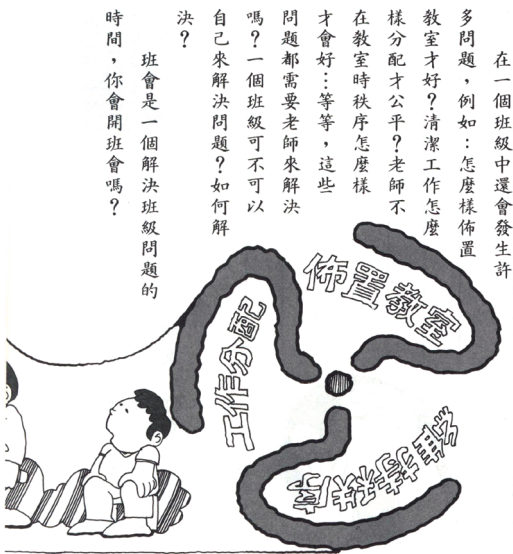 在一個班級中還會發生許
多問題，例如：怎麼樣佈置
教室才好？清潔工作怎麼
樣分配才公平？老師不
在教室時秩序怎麼樣
才會好…等等，這些
問題都需要老師來解決
嗎？一個班級可不可以
自己來解決問題？如何解
決？
班會是一個解決班級問題的
時間，你會開班會嗎？
佈置教室
工作分配
維持秩序